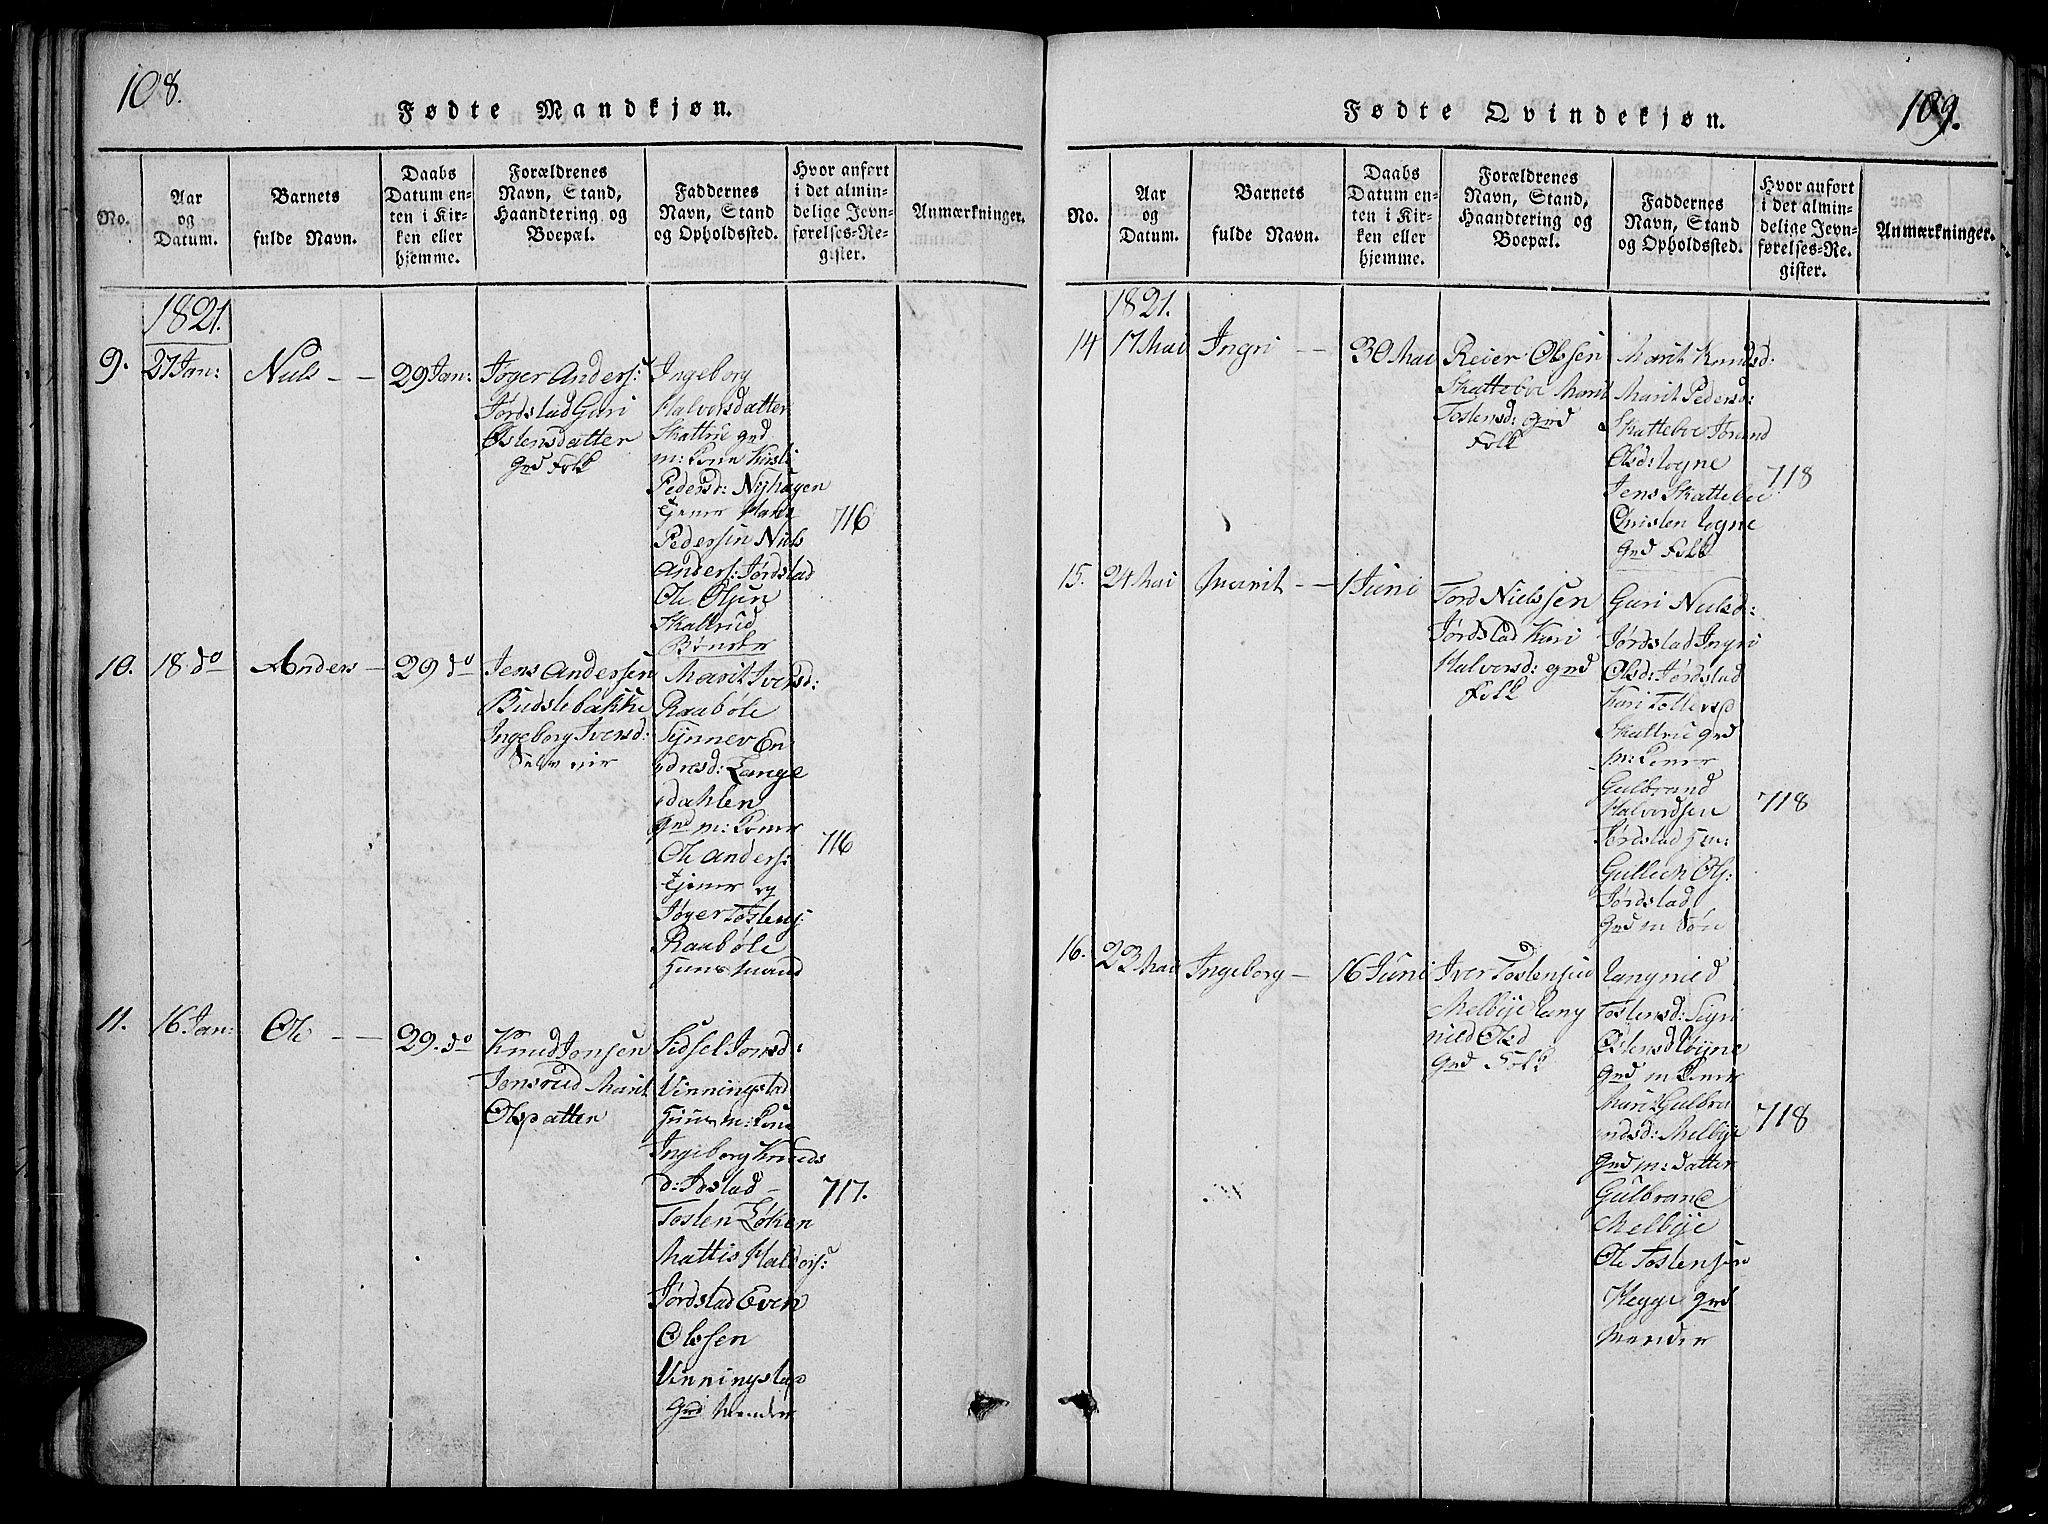 108.
Fødte Mandkjøn.
No.
Aar
og
Datum.
Barnets
fulde Navn.
Daabs
Datum en-
ten i Kir-
ken eller
hjemme.
Forældrenes
Navn, Stand,
Haandtering og
Boepæl.
Faddernes
Navn, Stand
og Opholdssted.
Hvor anført
i det almin-
delige Jevn-
førelses-Re-
gister.
Anmærkninger.
1821.
9.
27 Jan:
Niels
29 Jan:
Jøger Anders:
Jørdstad Guri
Østensdatter
Grd Folk
Ingeborg
Halvorsdatter
Skattrue grd
m: Kone Kirsti
Pedersd: Nyhagen
tjener Hans
Pedersen Niels
Anders: Jørdstad
Ole Olsen
Skattrud
Bønder
716
10.
18 do
Anders
29 do
Jens Andersen
Budslebakke
Ingeborg Iversd:
Marit Iversd:
Raabøle
Synnev En
dresd: Lange
dahlen
Grd m: Koner
Ole Anders:
tjener og
Jøger Tostens:
Raabøle
Huusmænd
716
11.
16 Jan:
Ole
29. do
Knud Jonsen
Jonsrud Marit
Olsdatter
Sidsel Jonsd:
Vinningstad
Huusm: Kone
Ingeborg Knuds
d: Jostad
Tosten Løken
Mattis Halvors:
Jørdstad Even
Olssen
Vinningstad
Grd Mænder
717.
109.
Fødte Qvindekjøn.
No.
Aar
og
Datum.
Barnets
fulde Navn.
Daabs
Datum en-
ten i Kir-
ken eller
hjemme.
Forældrenes
Navn, Stand,
Haandtering og
Boepæl.
Faddernes
Navn, Stand
og Opholdssted.
Hvor anført
i det almin-
delige Jevn-
førelses-Re-
gister.
Anmærkninger.
1821.
14
17 Mai
Ingri
30 Mai
Reier Olssen
Skatteboe Marit
Tostensd: grd
Folk
Marit Knudsd:
Marit Pedersd:
Skatteboe Jørand
Olsd: Logne
Jens Skatteboe
Christen Logne
Grd Folk
718
15.
24 Mai
Marit
1 Juni
Tord Nielssen
Jørdstad Kari
Halvorsd: grd
Folk
Guri Nielsd:
Jørdstad Ingri
Olsd: Jørdstad
Kari Tollevsd
Skattrue grd
m: Koner
Gulbrand
Halvordsen
Jørdstad
Gullick Ols:
Jørdstad
Grd m Søn
718
16.
23 Mai
Ingeborg
16 Juni
Iver Tostensen
Melbye Lang
nild Olsd
Grd Folk
Langnild
Tostensd: Sigri
Østensd Løyne
Grd m Koner
Mari Gulbra
ndsd: Melbye
Grd m: Datter
Gulbrand
Melbye
Ole Tostensen
Hegge Grd
Mænder
718